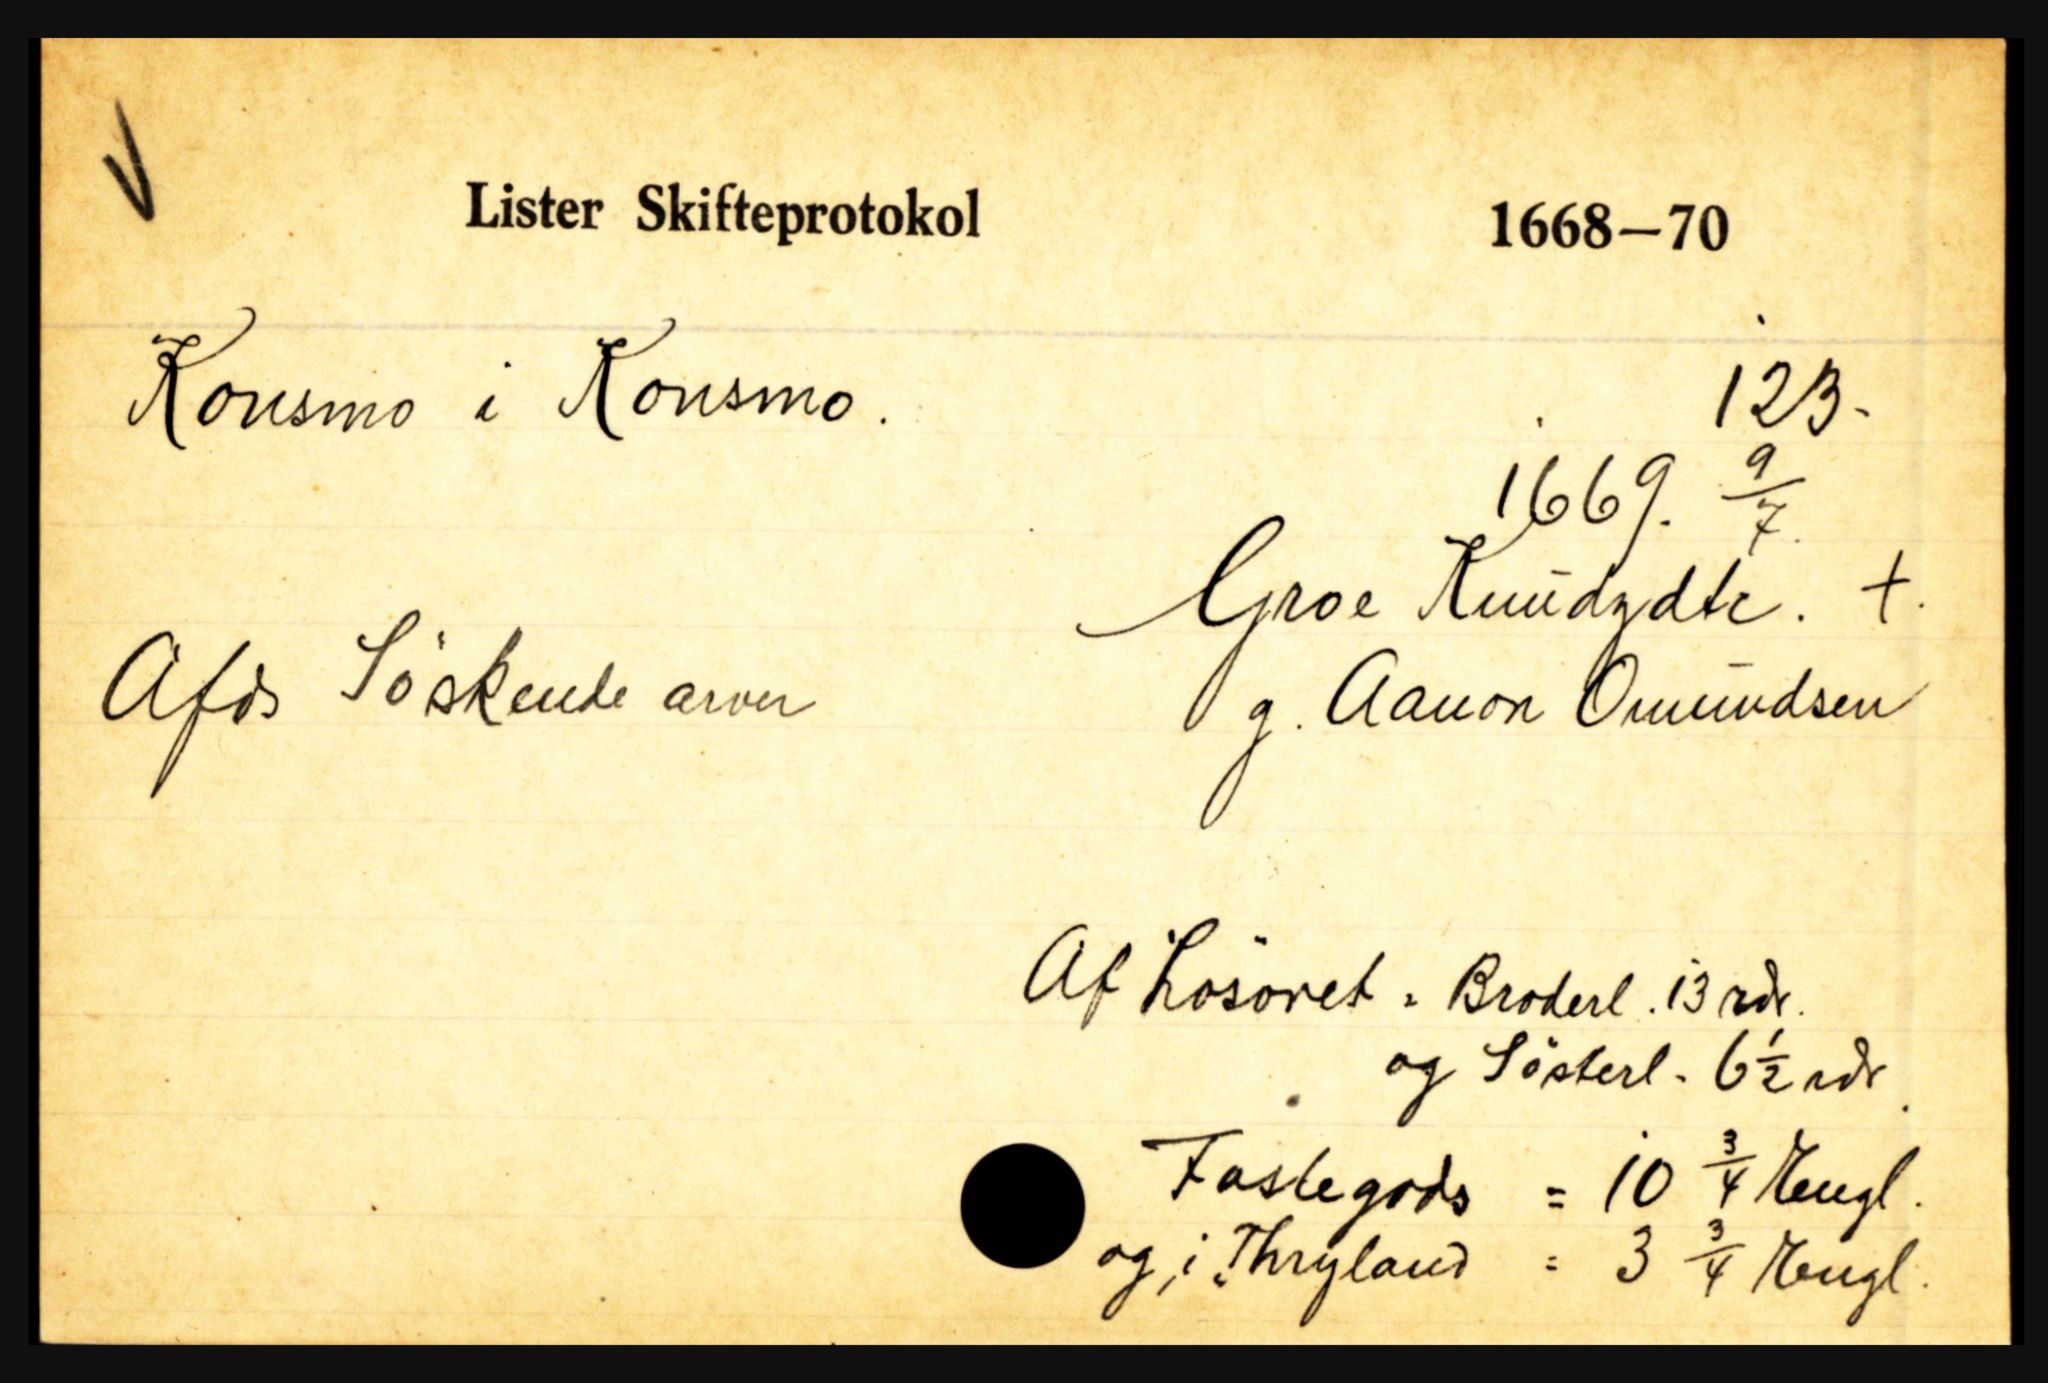 Lister Skifteprotokol 1668–70
Konsmo i Konsmo. 123.
1669. 9/7.
Groe Knudzdtr. †.
Afds Söskende arver
g. Aanon Omundsen
Af Lösöret = Broderl. 13 rdr.
og Sösterl. 6 1/2 rdr.
Fastegods = 10 3/4 Engl.
og i Thryland = 3 3/4 Engl.